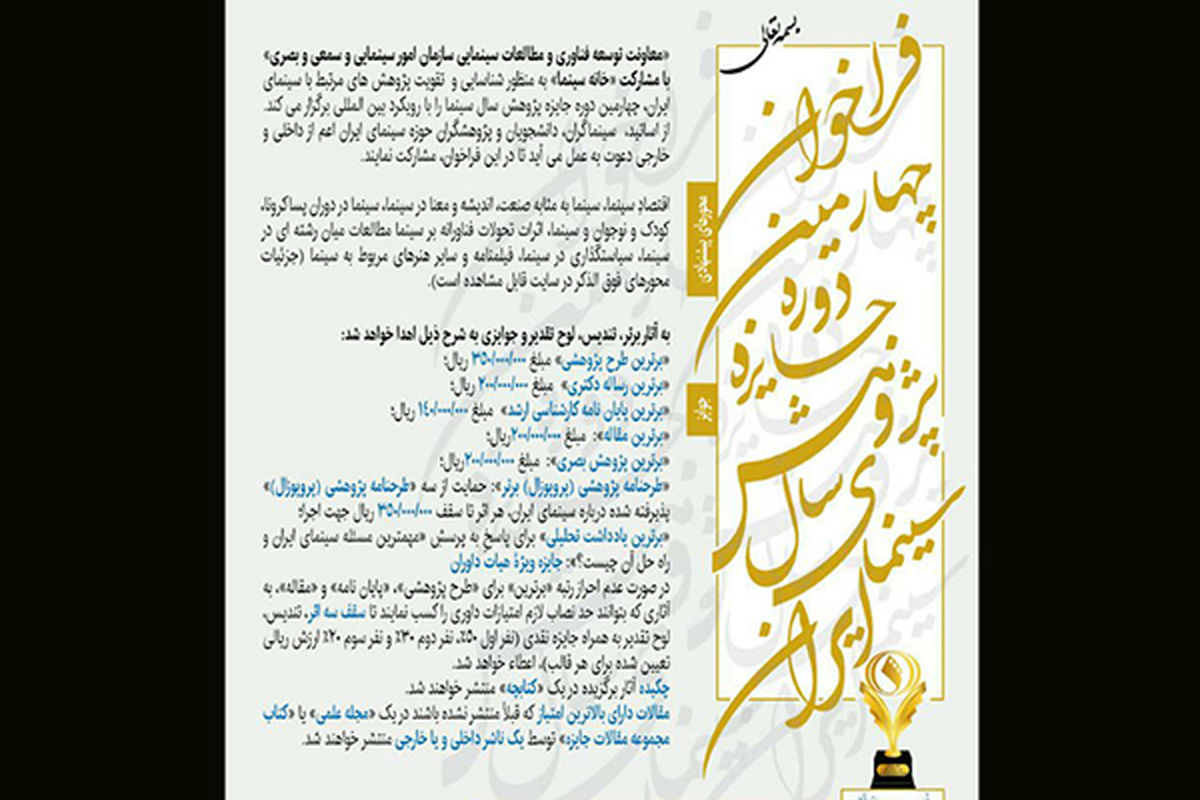 بسمه تعالی
فراخوان
چهارمین
دوره
جایزه
پژوهش
سال
سینمای
ایران
«معاونت توسعه فناوری و مطالعات سینمایی سازمان امور سینمایی و سمعی و بصری»
با مشارکت «خانه سینما» به منظور شناسایی و تقویت پژوهش های مرتبط با سینمای
ایران، چهارمین دوره جایزه پژوهش سال سینما را با رویکرد بین المللی برگزار می کند.
از اساتید، سینماگران، دانشجویان و پژوهشگران حوزه سینمای ایران اعم از داخلی و
خارجی دعوت به عمل می آید تا در این فراخوان، مشارکت نمایند.
محورهای پیشنهادی
اقتصاد سینما، سینما به مثابه صنعت، اندیشه و معنا در سینما، سینما در دوران پساکرونا،
کودک و نوجوان و سینما، اثرات تحولات فناورانه بر سینما مطالعات میان رشته ای در
سینما، سیاستگذاری در سینما، فیلمنامه و سایر هنرهای مربوط به سینما (جزئیات
محورهای فوق الذکر در سایت قابل مشاهده است).
جوایز
به آثار برتر، تندیس، لوح تقدیر و جوایزی به شرح ذیل اهدا خواهد شد:
«برترین طرح پژوهشی» مبلغ ۳۵۰/۰۰۰/۰۰۰ ریال؛
«برترین رساله دکتری» مبلغ ۲۰۰/۰۰۰/۰۰۰ ریال؛
«برترین پایان نامه کارشناسی ارشد» مبلغ ۱۴۰/۰۰۰/۰۰۰ ریال؛
«برترین مقاله»: مبلغ ۲۰۰/۰۰۰/۰۰۰ریال؛
«برترین پژوهش بصری»: مبلغ ۲۰۰/۰۰۰/۰۰۰ریال؛
«طرحنامه پژوهشی (پروپوزال) برتر»: حمایت از سه «طرحنامه پژوهشی (پروپوزال)»
پذیرفته شده درباره سینمای ایران، هر اثر تا سقف ۳۵۰/۰۰۰/۰۰۰ ریال جهت اجرا؛
«برترین یادداشت تحلیلی» برای پاسخ به پرسش «مهمترین مسئله سینمای ایران و
راه حل آن چیست؟»: جایزه ویژۀ هیات داوران
در صورت عدم احراز رتبه «برترین» برای «طرح پژوهشی»، «پایان نامه» و «مقاله»، به
آثاری که بتوانند حد نصاب لازم امتیازات داوری را کسب نمایند تا سقف سه اثر، تندیس،
لوح تقدیر به همراه جایزه نقدی (نفر اول ۵۰٪، نفر دوم ۳۰٪ و نفر سوم ۲۰٪ ارزش ریالی
تعیین شده برای هر قالب)، اعطاء خواهد شد.
چکیده آثار برگزیده در یک «کتابچه» منتشر خواهند شد.
مقالات دارای بالاترین امتیاز که قبلاً منتشر نشده باشند در یک «مجله علمی» یا «کتاب
مجموعه مقالات جایزه» توسط یک ناشر داخلی و یا خارجی منتشر خواهند شد.